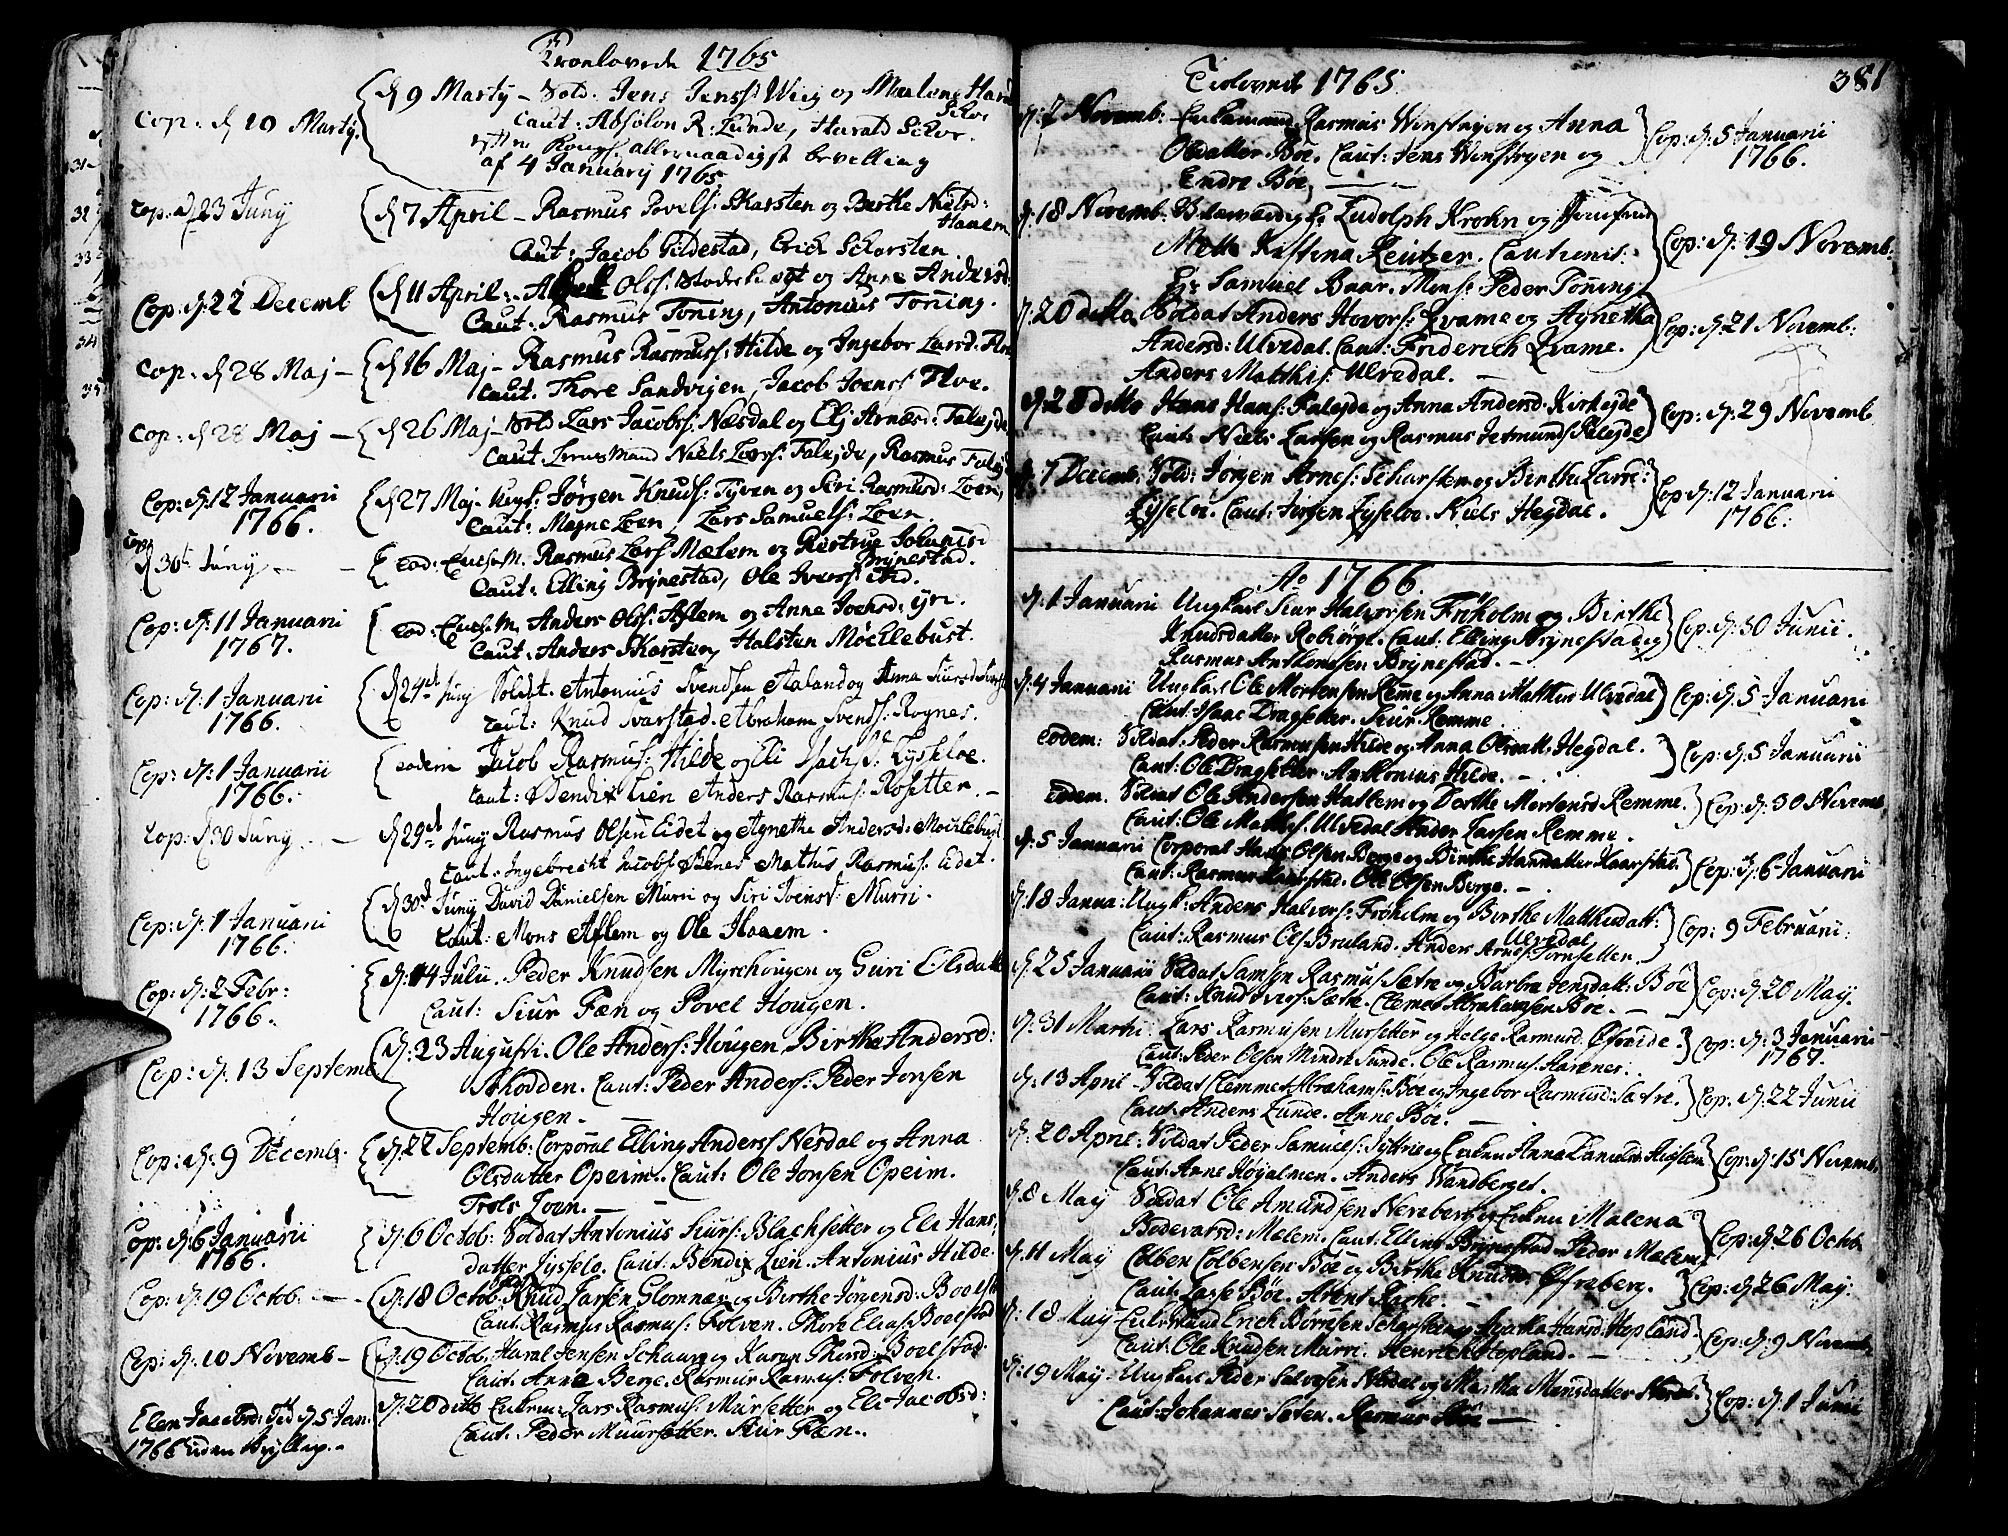 Troelovede 1765
d 9 Martÿ - Sold. Jens Jenss: Wiig og Malene Harals
Schor
Cop: d 10 Martÿ.
Caut: Absolon R: Lunde, Harald Schor.
Kongl. allernaadigst bevelling
af 4 Januarij 1765
Cop. d 23 Junÿ
d 7 April - Rasmus Povels: Skarsten og Berthe Nielsd:
Haaem
Caut: Jacob Gildestad, Erich Scharsten
Cop: d: 22 Decemb
d 11 April: Olss: og Anne Andersd:
Caut: Rasmus Toning, Antonius Toning.
Cop. d 28 Maj -
d 16 Maj - Rasmus Rasmuss: Hilde og Ingebor Larsd. Flo
Caut. Thore Sandvigen, Jacob Joenss Floe.
Cop: d 28 Maj -
d 26 Maj - Sold Lars Jacobss: Næsdal og Elj Arnesd: Falejde
Caut: Niels Larss: Falejde, Rasmus Falejde
Cop: d: 12 Januarii
1766.
d 27 Maj - Ungk: Jørgen Knuds: Tyven og Siri Rasmusd: Loen,
Caut: Magne Loen, Lars Samuels: Loen.
Cop:
d 30t Junÿ -
eod: Enkem. Rasmus Lars: Mælem og Gertrue Johanisd:
Brÿnestad.
Caut: Elling Brÿnestad, Ole Ivers: ibid.
Cop: d: 11 Januarii
1767.
eod: Enkem. Anders Olss: Aflem og Anne Joensd: ÿri.
Caut: Anders Skarsten, Halsten Möcklebust.
Cop: d: 1 Januarii
1766.
d 24de Junÿ Soldt. Antonius Svendsen Aaland og Anna Siursd
Caut: Knud Svarstad. Abraham Svends: Rognes.
Cop: d: 1 Januarii
1766.
eodem Jacob Rasmus: Hilde og Eli Isachsd: Lyseloe.
Caut: Bendix Lien Anders Rasmus: Rosetter. -
Cop: d 30 Junÿ -
d 29de Junÿ Rasmus Olsen Eidet og Agnethe Andersd: Mochlebust
Caut: Ingebrecht Jacobs: Mathias Rasmus: Eidet.
Cop: d: 1 Januarii
1766.
d 30d Junÿ David Danielsen Murri og Siri Joensd: Murri.
Caut: Mons Aflem og Ole Haaem.
Cop: d: 2 Febr:
1766.
d: 14 Julii. Peder Knudsen Myrehougen og Guri Olsdatt
Caut: Siur Fæn og Povel Hougen.
Cop: d: 13 Septemb
d: 23 Augusti. Ole Anders: Hougen, Birthe Andersd:
Skodden. Caut: Peder Anders: Peder Jonsen
Hougen -
Cop: d: 9 Decemb.
d: 22 Septemb: Corporal Elling Anders: Nesdal og Anna
Olsdatter Opeim. Caut: Ole Jonsen Opeim.
Trols Loen. -
Cop: d: 6 Januarii
1766.
d: 6 Octob: Soldat Antonius Siurs: Blachsetter og Ele Hans,
datter Lysselo. Caut: Bendix Lien. Antonius Hilde.
Cop: d: 19 Octob. -
d: 18 Octob. Knud Larsen Glomnæs og Birthe Jørgensd: Boelst
Caut: Rasmus Rasmus: Folven. Thore Elias: Boelstad
Cop: d: 10 Novemb -
d: 19 Octob. Haral Jensen Schaar og Karen Thersd: Boelstad.
Caut. Anna Berge. Rasmus Rasmus: Folven.
Elen Jacobsd: Død d 5 Jan.
1766 uden Bryllup. -
d: 20 ditto Enkem: Lars Rasmus: Mursetter og Ele Jacobsd:
Caut. Peder Muursetter. Siur Fæn.
Trolovede 1765.
381
d: 7 Novemb: Enkemand Rasmus Winsrygen og Anna
Olsdatter Bøe. Caut: Jens Winsrygen og
Endre Bøe, -
Cop: d: 5 Januarii
1766.
d: 18 Novemb: Ludolph Krohn og
Mette Kistina Reutzer. Cautionist:
Hr Samuel Baar. Mons: Peder Toning
Cop: d: 19 Novemb.
d: 20 ditto Soldat Anders Hovers: Qvame og Agnetha
Andersd: Ulvedal. Caut: Friderich Qvame.
Anders Matthis: Ulvedal. -
Cop: d: 21 Novemb:
d: 28 ditto Hans Hans: Faleyde og Anna Andersd. Kirkeyde
Caut: Niels Larsen og Rasmus Jetmunds: Faleyde
Cop: d: 29 Novemb
d: 7 Decemb. Sold: Jørgen Arnes: Scharsten og Birthe Larsd:
Lysseloe. Caut: Jensen Lysseloe. Niels Hegdal.
Cop d: 12 Januarii
1766.
Ao 1766.
d: 1 Januarii Ungkarl Siur Halvorsen Frøholm og Birthe
Knudsdatter Robjørge. Caut: Elling Brynestad og
Rasmus Anthonesen Brynestad. -
Cop: d: 30 Junii.
d: 4 Januarii Ungkarl Ole Mortensen Remme og Anna Matthisd Ulvedal
Caut: Isaac Dragsetter. Siur Remme.
Cop: d: 5 Januarii
eodem: Soldat Peder Rasmusen Hilde og Anna Olsdatt. Hegdal.
Caut: Ole Dragsetter. Anthonius Hilde. -
Cop: d: 5 Januarii
eodem. Soldat Ole Andersen Hallem og Berthe Mortensd Remme.
Caut: Ole Matthis: Ulvedal Ander Larsen Remme.
Cop: d: 30 Novemb
d: 5 Januarii Corporal Hans Olsen Berge og Birthe Hansdatter Haarstad.
Caut: Rasmus Haarstad. Ole Olsen Berge. -
Cop: d: 6 Januarii
d: 18 Janua: Ungk: Anders Halvors: Frøholm og Birthe Matthisdatt:
Ulvedal
Caut: Rasmus Ols: Bruland. Anders Arnes: Tornsetter.
Cop: 9 Februarii:
d: 25 Januarii Soldat Samson Rasmus: Sætre og Barbra Jensdatt: Bøe
Caut: Knud Sætre. Clemet Abrahamsen Bøe. -
Cop: d: 20 May.
d: 31 Martii: Lars Rasmusen Mursetter og Helge Rasmusd. Øfreide.
Caut: Peder Olsen Mindre Sunde. Ole Rasmus: Starenes.
Cop: d: 3 Januarii -
1767.
d: 13 April - Soldat Clemmet Abrahams: Bøe og Ingebor Rasmusd: Sætre.
Caut: Anders Lunde. Anne Bøe. -
Cop: d: 22 Junii
d: 20 April: Soldat Peder Samuels: og Enken Anna Danielsd
Caut: Arne Høyalmen. Anders Wandberget.
Cop: d: 15 Novemb.
d: 8 May Soldat Ole Amundsen Nereberg og Enken Malena
Bodevarsd: Mælem. Caut: Elling Brynestad Peder Mælem
Cop: d: 26 Octob
d: 11 May Colben Colbensen Bøe og Birthe Knudsd Øfreberg.
Caut: Lasse Bøe. Arent
Cop: d: 26 May.
d: 18 May Enkemand Erich Børnsen Scharsten og Martha Hansd Hopland
Caut: Ole Knudsen Murri. Henrich Hopland. -
Cop: d: 9 Novemb
d: 19 May - Ungkarl Peder Salvesen Nesdal og Martha Monsdatter
Caut: Johannes Sæten. Rasmus Bøe -
Cop: d: 1 Junii